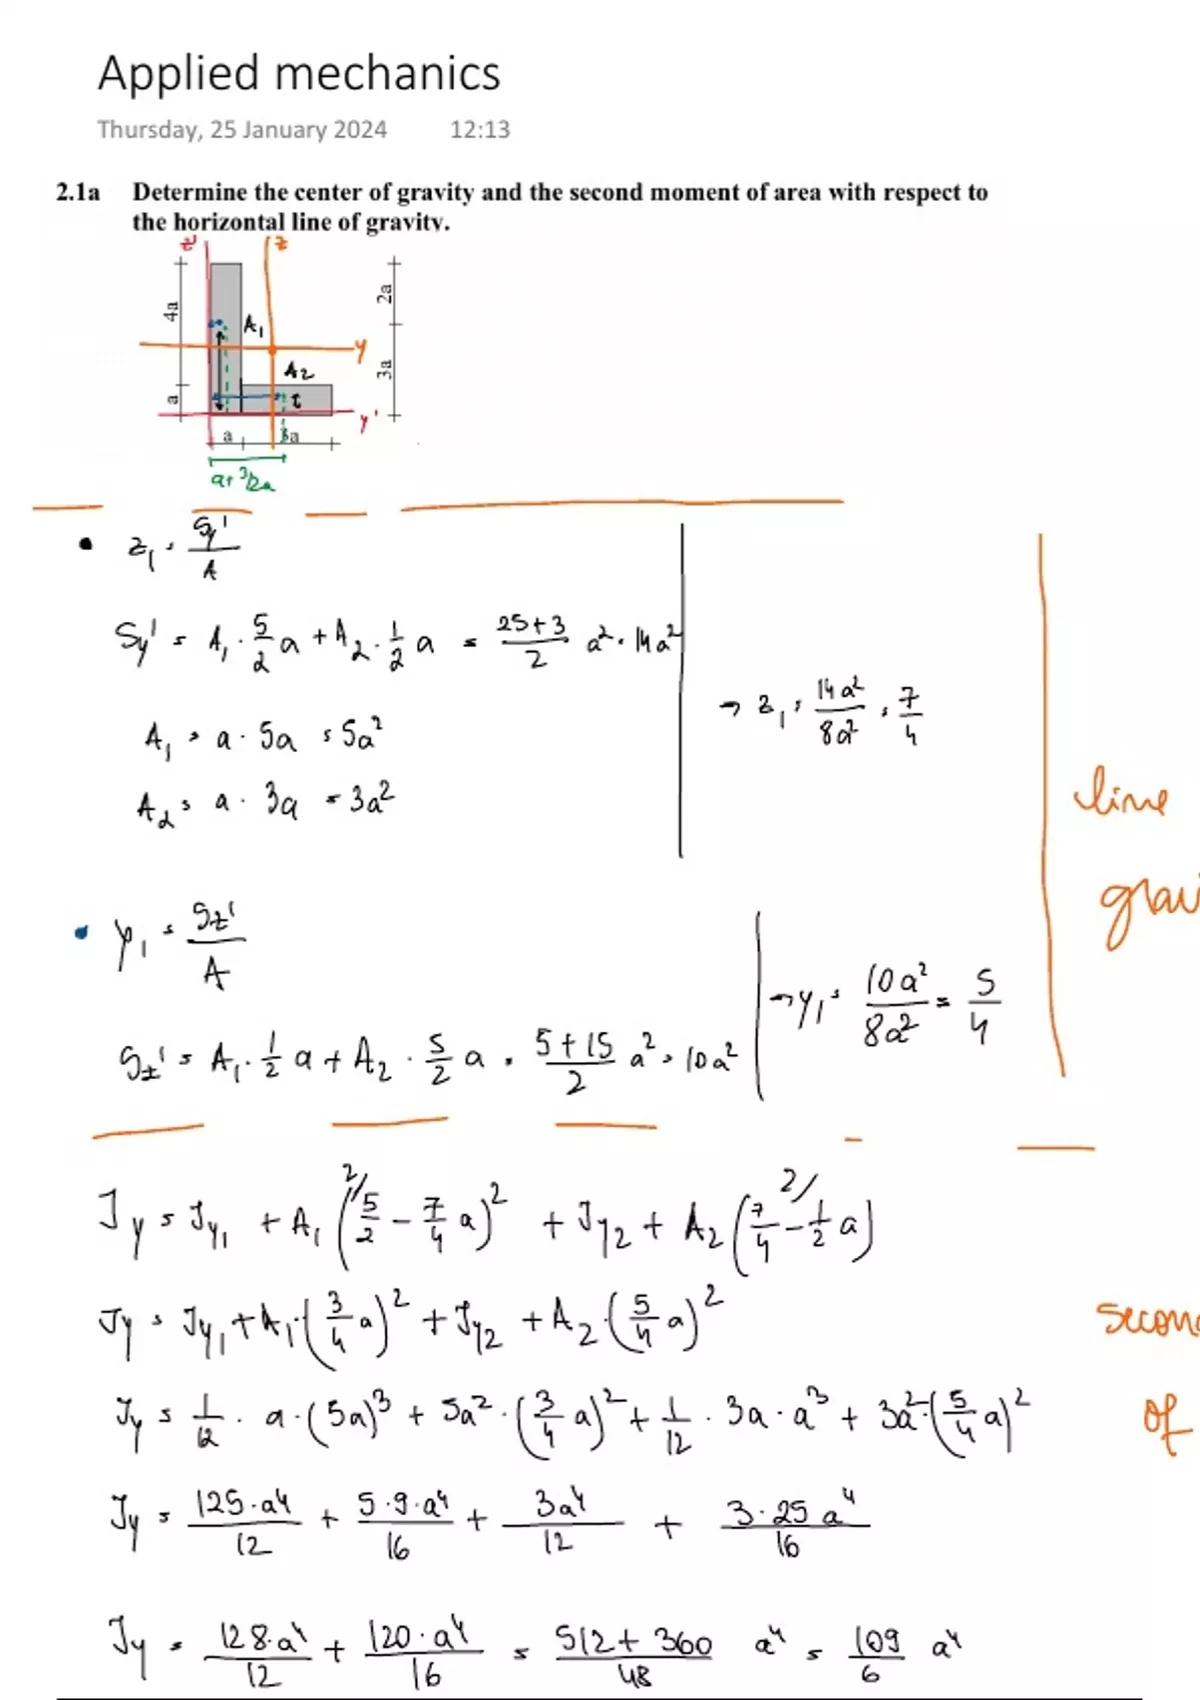 Applied mechanics
Thursday, 25 January 2024 12:13
2.1a Determine the center of gravity and the second moment of area with respect to
the horizontal line of gravity.
z' z
4a A₁ 2a
y
A₂ 3a
a t
y'
a 3a
a+ 3/2a
• z₁ = Sy'/A
Sy' = A₁ · 5/2 a + A₂ · 1/2 a = (25+3)/2 a² = 14a²
→ z₁ = 14a²/8a² = 7/4
A₁ = a · 5a = 5a²
A₂ = a · 3a = 3a²
line
grav
• y₁ = Sz'/A
→ y₁ = 10a²/8a² = 5/4
Sz' = A₁ · 1/2 a + A₂ · 5/2 a = (5+15)/2 a² = 10a²
Jy = Jy₁ + A₁ (5/2 - 7/4 a)² + Jy₂ + A₂ (7/4 - 1/2 a)²
Jy = Jy₁ + A₁ · (3/4 a)² + Jy₂ + A₂ · (5/4 a)²
secon
Jy = 1/12 · a · (5a)³ + 5a² · (3/4 a)² + 1/12 · 3a · a³ + 3a² · (5/4 a)²
of
Jy = 125·a⁴/12 + 5·9·a⁴/16 + 3a⁴/12 + 3·25 a⁴/16
Jy = 128·a⁴/12 + 120·a⁴/16 = (512+360)/48 a⁴ = 109/6 a⁴